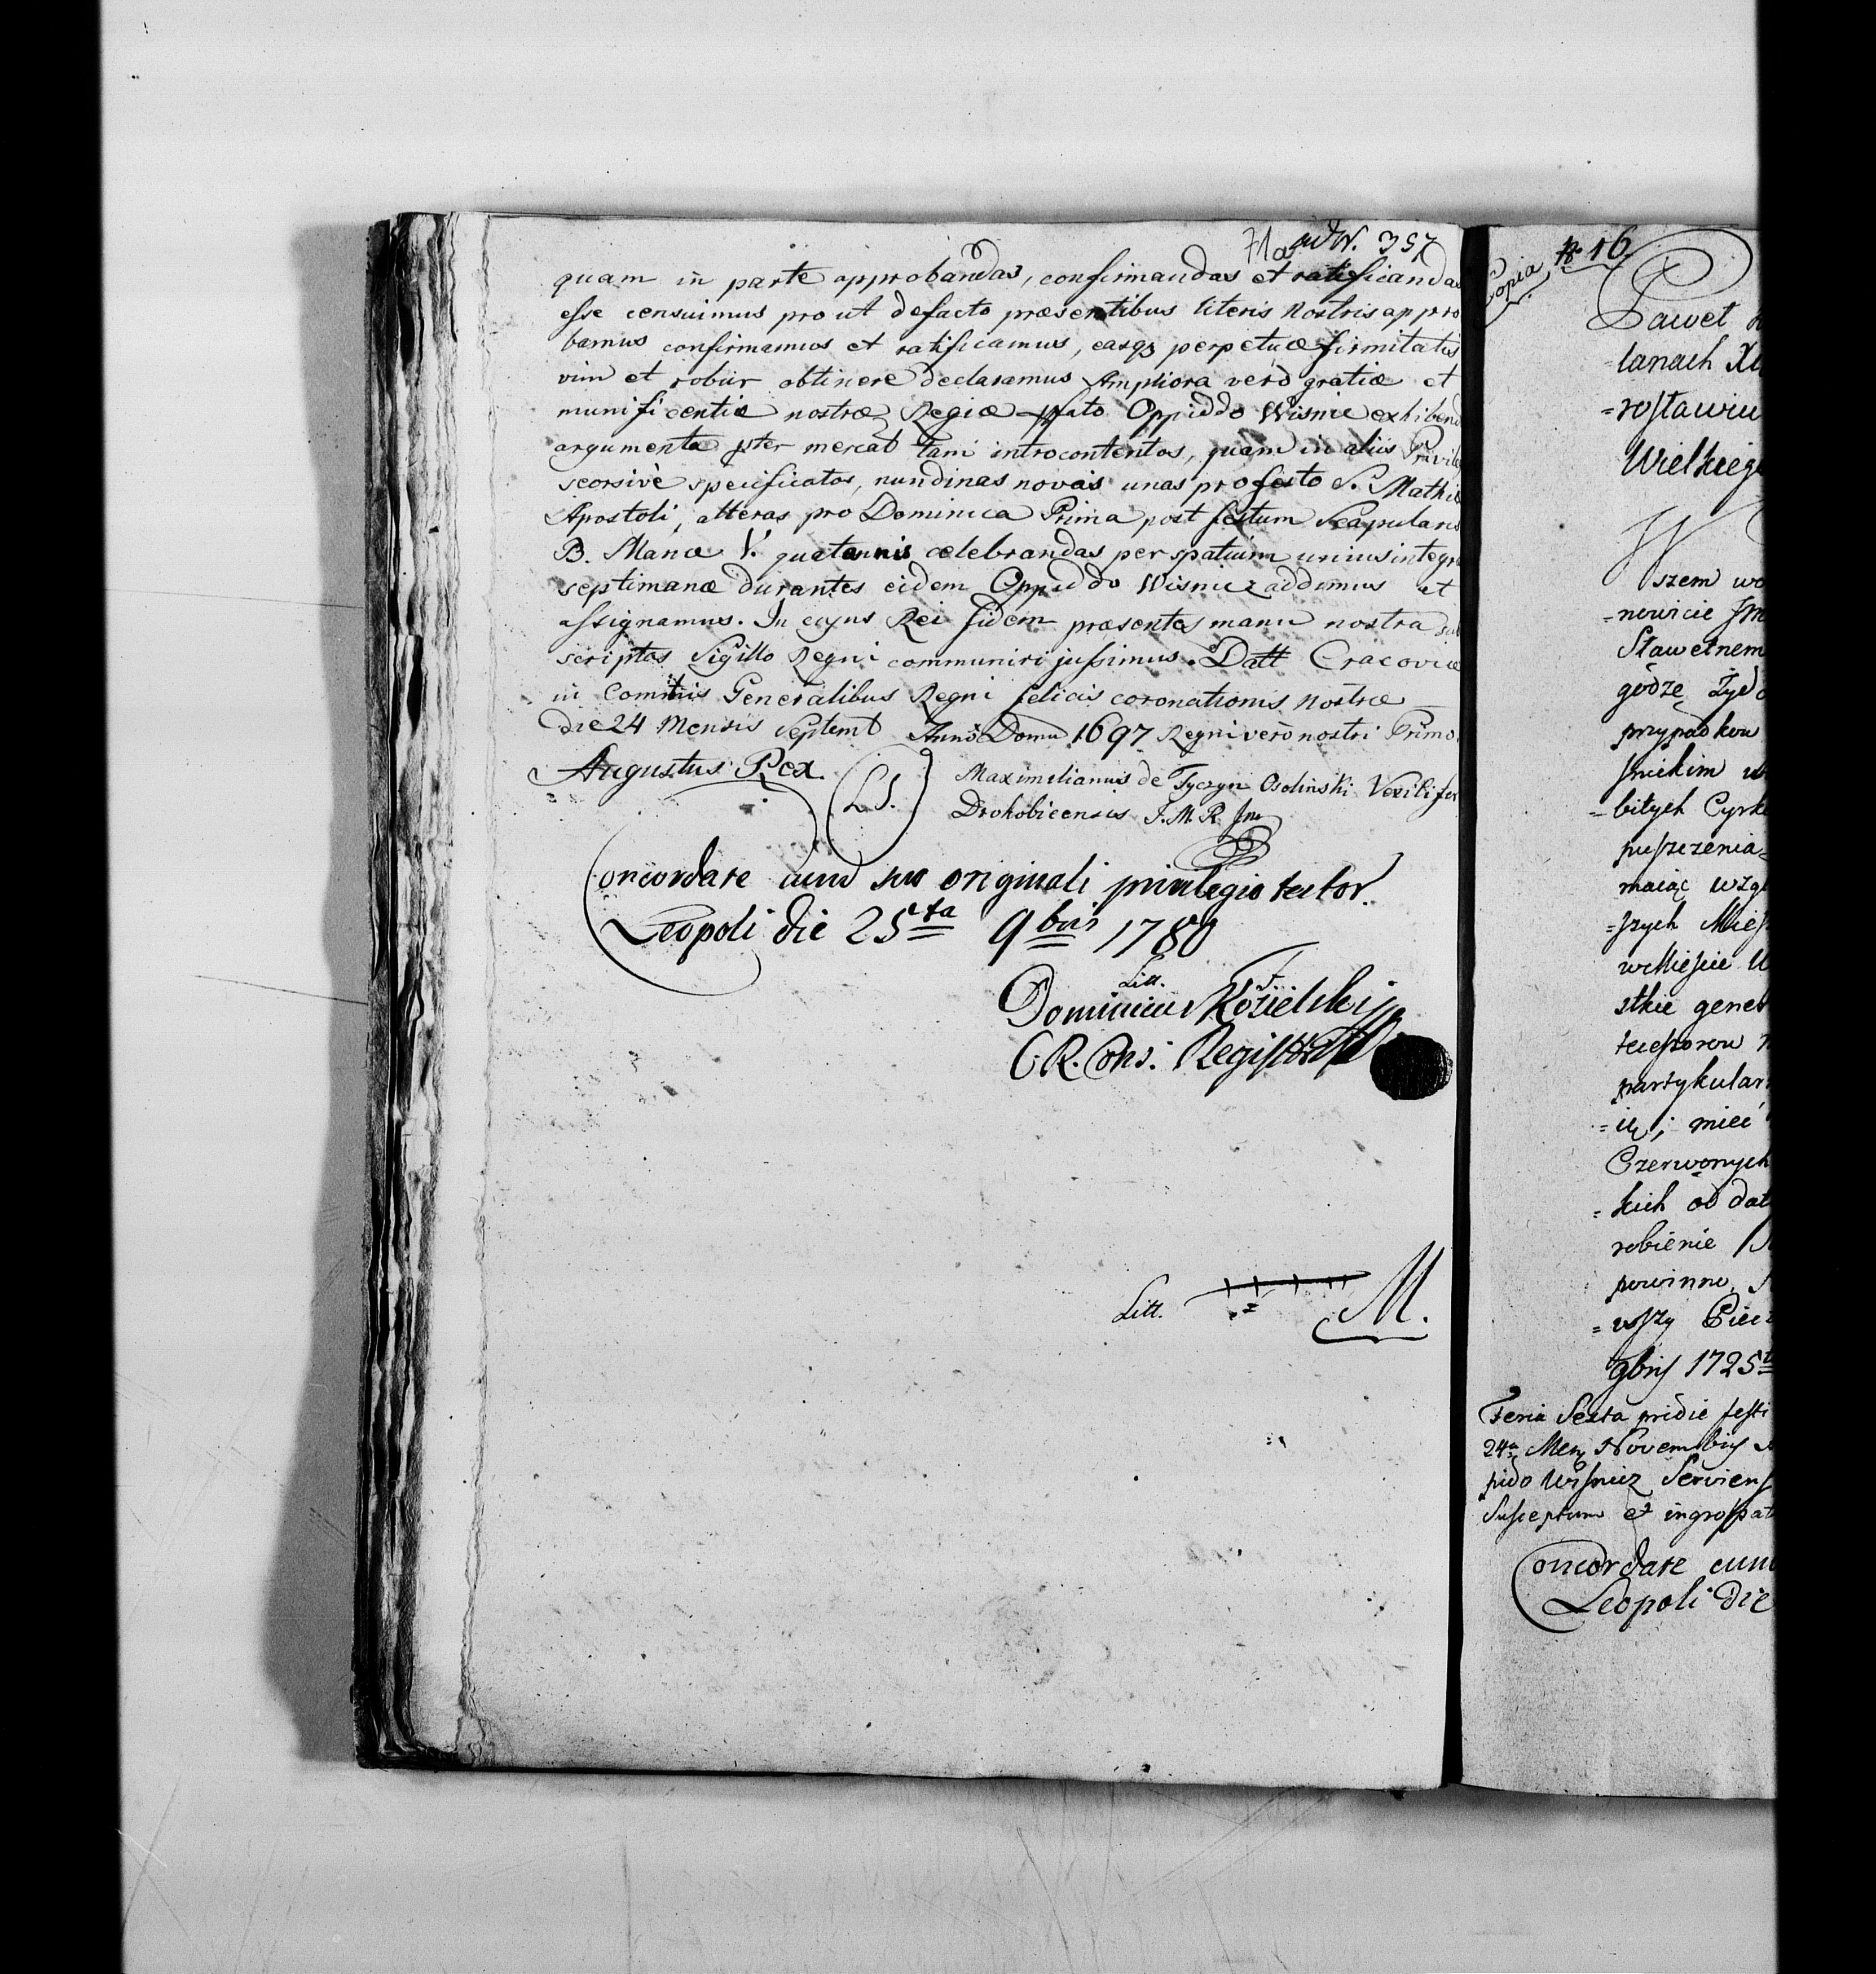 71a ad N. 357
quam in parte approbandas, confirmandas et ratificandas
esse censuimus pro ut defacto præsentibus literis Nostris appro
bamus confirmamus et ratificamus, easq3 perpetuæ firmitatis
vim et robur obtinere declaramus Ampliora verò gratiæ et
munificentiæ nostræ Regiæ pfato Oppiddo Wisnic exhibend
argumenta pter mercat tam introcontentos, quam in aliis Privile
seorsivè specificatos, nundinas novas unas pro festo S. Mathiæ
Apostoli, alteras pro Dominica Prima post festum Scapularis
B. Mariæ V. quotannis celebrandas per spatium unius integræ
septimanæ durantes eidem Oppiddo Wisnicz addimus et
assignamus. In cujus Rei fidem præsentes manu nostra sub
scriptas Sigillo Regni communiri jussimus. Datt Cracoviæ
in Comitiis Generalibus Regni felicis coronationis nostræ
die 24 Mensis Septemb Anno Domi 1697 Regni verò nostri Primo.
Augustus Rex. (L.S.) Maximilianus de Tyczyn Osolinski Vexilifer
Drohobicensis S. M. R.
Concordare cum suo originali privilegio testor.
Leopoli die 25ta 9bris 1780
Litt.
Dominicus Kozielski
C. R. Cons. Registr
Litt. M.
Copia
№ 16
Pawel
lanach Xi
=rostawiu
Wielkiego
Wszem wo
=nowicie
Slawetnem
godze Zydo
przypadkow
snickim
=bitych Cyrk
puszczenia
maiąc wzgl
=szych Miesz
w Miescie
stkie gener
tecessorow
partykular
=ią; mieć
Czerwonych
=kich od dat
robienie
powinno
=wszy Piecz
9bris 1725
Feria Sexta pridie festi
24a Mens Novembris
pido Wisnicz Serviens
Susceptum et ingrossat
Concordare cum
Leopoli die